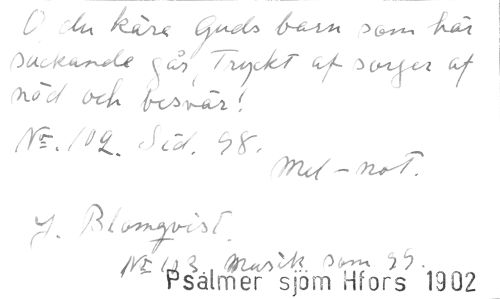 O, du kära Guds barn som här
suckande går, Tryckt af sorger af
nöd och besvär!
No. 102. Sid. 98.
Mel-not.
J. Blomqvist.
No 103. Musik som 99.
Psalmer sjöm Hfors 1902